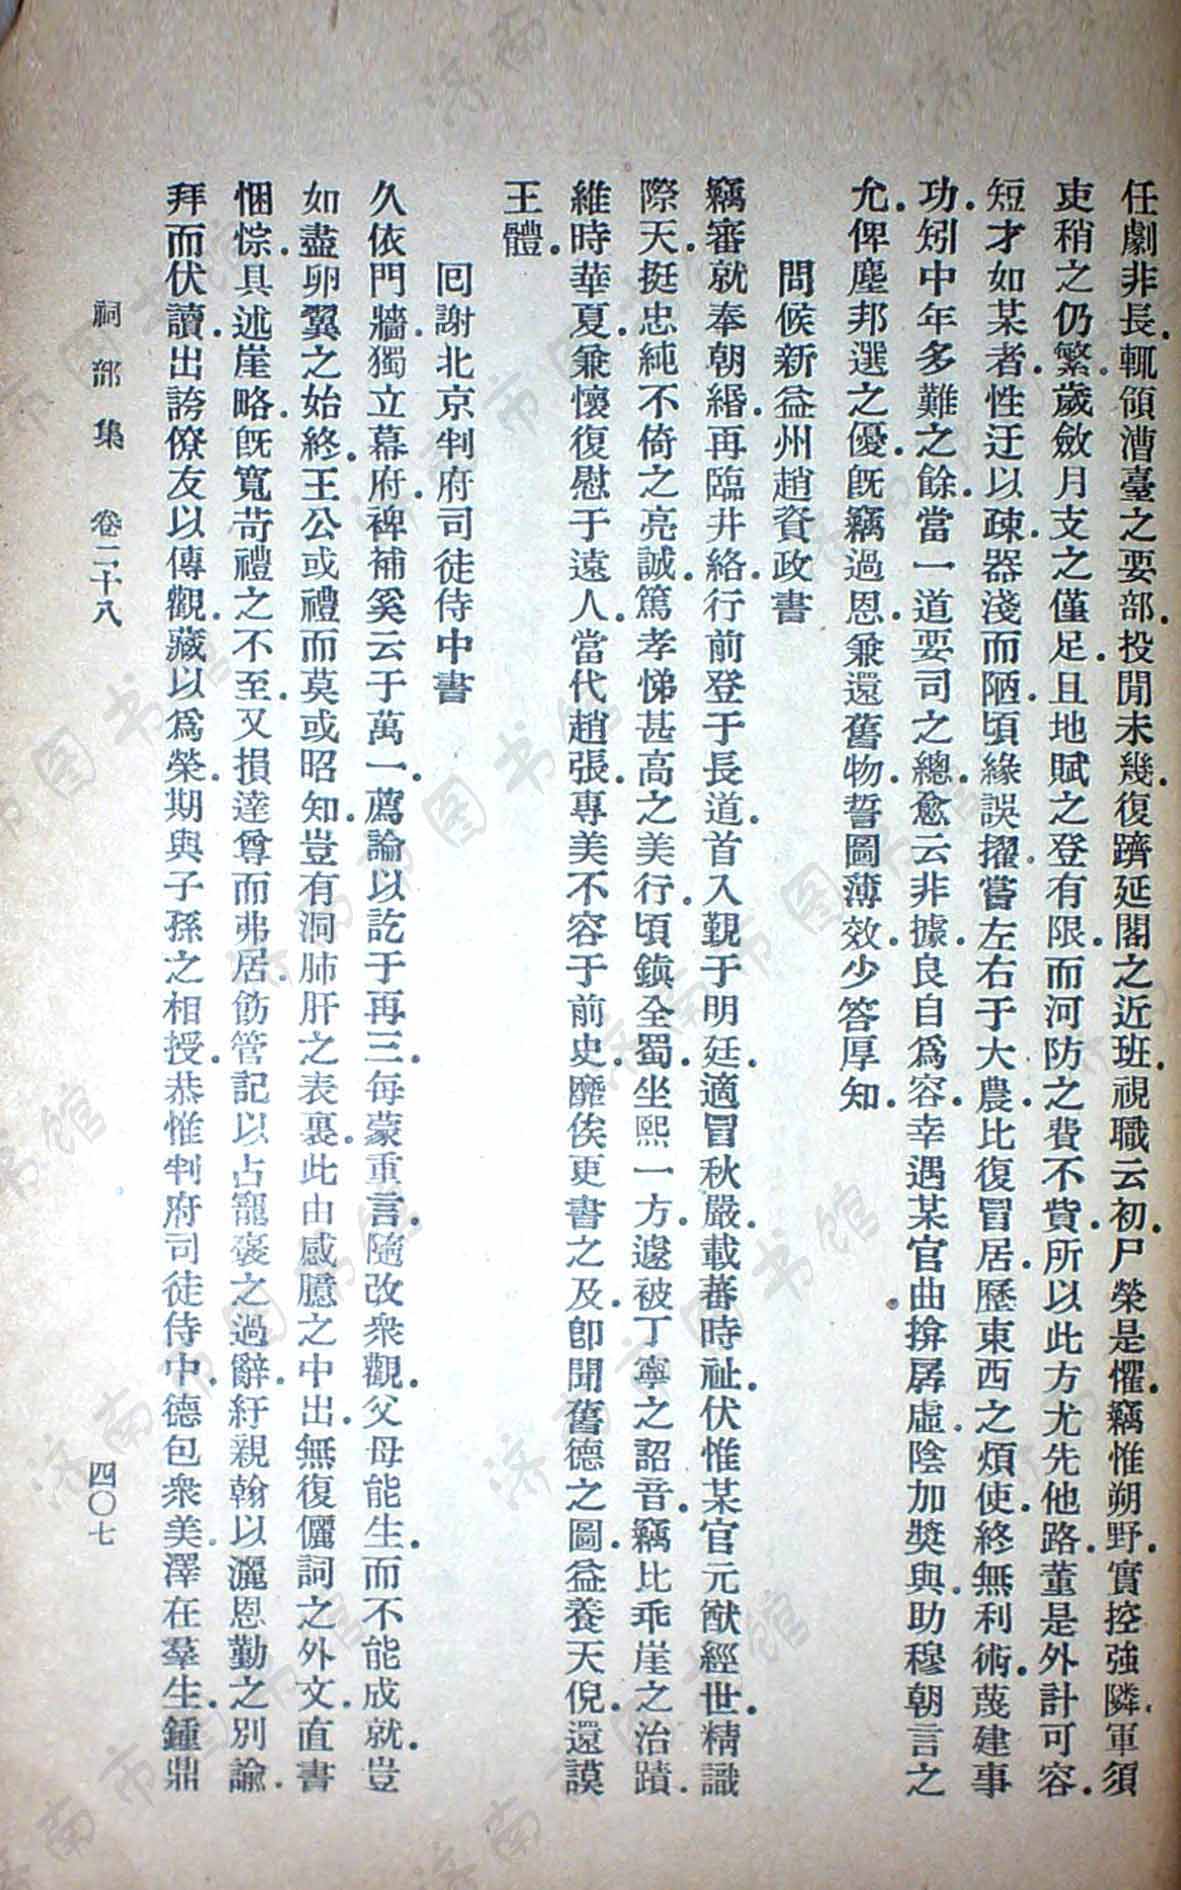 任劇非長.輒領漕臺之要部.投閒未幾.復躋延閣之近班.視職云初.尸榮是懼.竊惟朔野.實控強隣.軍須
吏稍之仍繁.歲斂月支之僅足.且地賦之登有限.而河防之費不貲.所以此方尤先他路.董是外計可容
短才如某者.性迂以疎.器淺而陋.頃緣誤擢.嘗左右于大農.比復冒居.歷東西之煩使.終無利術.蔑建事
功.矧中年多難之餘.當一道要司之總.愈云非據.良自爲容.幸遇某官曲揜孱虛.陰加獎與.助穆朝言之
允.俾塵邦選之優.旣竊過恩.兼還舊物.誓圖薄效.少答厚知.
問候新益州趙資政書
竊審就奉朝緡.再臨井絡.行前登于長道.首入覲于明廷.適冒秋嚴.載蕃時祉.伏惟某官元猷經世.精識
際天.挺忠純不倚之亮誠.篤孝悌甚高之美行.頃鎮全蜀.坐熙一方.遽被丁寧之詔音.竊比乖崖之治蹟.
維時華夏.兼懷復慰于遠人.當代趙張.專美不容于前史.靡俟更書之及.卽聞舊德之圖.益養天倪.還謨
王體.
回謝北京判府司徒侍中書
久依門牆.獨立幕府.裨補奚云于萬一.薦論以訖于再三.每蒙重言.隨改衆觀.父母能生.而不能成就.豈
如盡卵翼之始終.王公或禮而莫或昭知.豈有洞肺肝之表裏.此由感臆之中出.無復儷詞之外文.直書
悃悰.具述崖略.旣寬苛禮之不至.又損達尊而弗居.飭管記以占寵褒之過辭.紆親翰以灑恩勤之別諭.
拜而伏讀.出誇僚友以傳觀.藏以爲榮.期與子孫之相授.恭惟判府司徒侍中.德包衆美.澤在羣生.鍾鼎
祠部集 卷二十八 四〇七